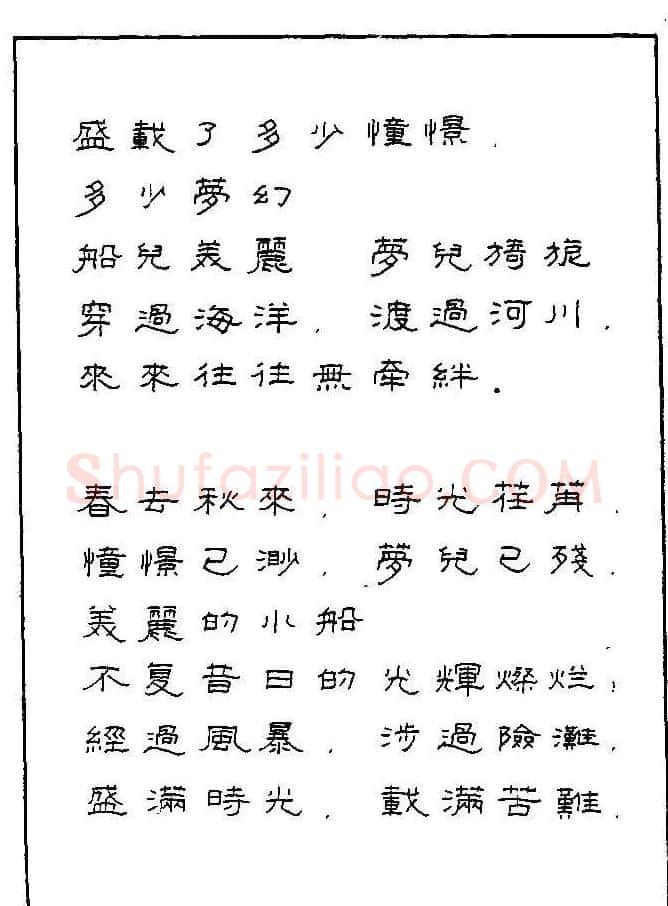 盛載了多少憧憬．
多少夢幻
船兒美麗　夢兒旖旎
穿過海洋．渡過河川．
來來往往無牽絆．
Shufaziliao.COM
春去秋來．時光荏苒．
憧憬已渺．夢兒已殘．
美麗的小船
不复昔日的光輝燦烂；
經過風暴．涉過險灘．
盛滿時光．載滿苦難．